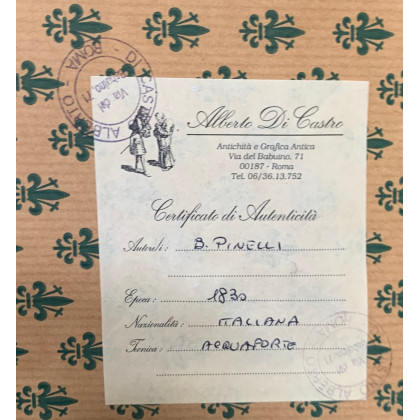 DI CASTRO
ALBERTO - ROMA
Via del
Babuino, 71
Alberto Di Castro
Antichità e Grafica Antica
Via del Babuino, 71
00187 - Roma
Tel. 06/36.13.752
Certificato di Autenticità
Autore/i: B. PINELLI
Epoca: 1830
Nazionalità: ITALIANA
Tecnica: ACQUAFORTE